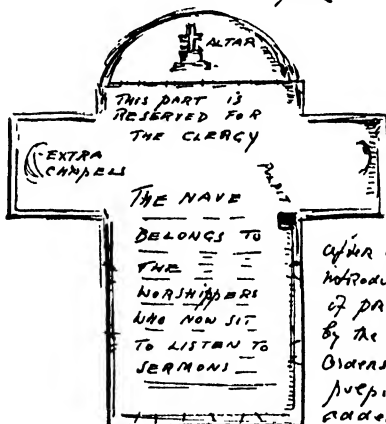 ALTAR
THIS PART IS
RESERVED FOR
THE CLERGY
EXTRA
CHAPELS
PULPIT
THE NAVE
BELONGS TO
THE
WORSHIPPERS
WHO NOW SIT
TO LISTEN TO
SERMONS
after
of
by the
Orders